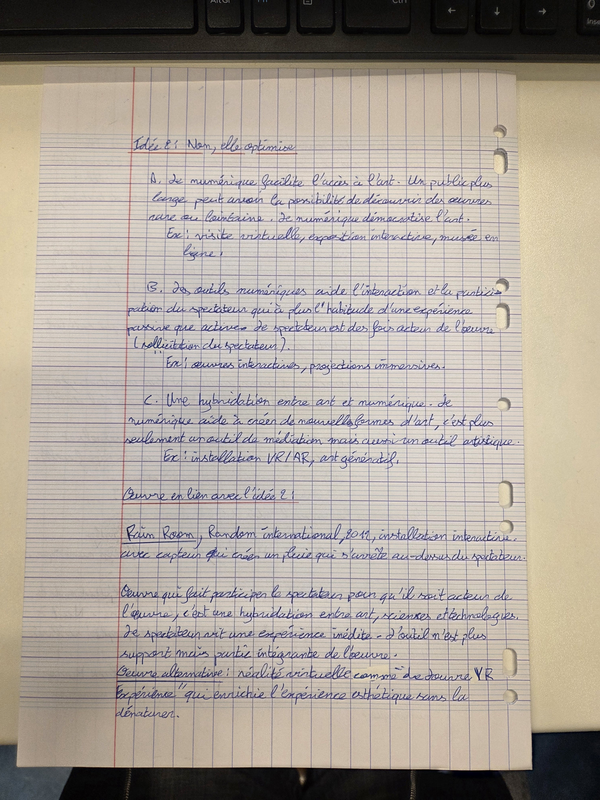 AltGr
Fn
Ctrl
←
↓
→
Inse
Idée 2 : Non, elle optimise
A. Le numérique facilite l'accès à l'art. Un public plus
large peut avoir la possibilité de découvrir des œuvres
rare ou lointaine. Le numérique démocratise l'art.
Ex : visite virtuelle, exposition interactive, musée en
ligne.
B. Les outils numériques aide l'interaction et la partici-
pation du spectateur qui à plus l'habitude d'une expérience
passive que active. Le spectateur est des fois acteur de l'œuvre
(sollicitation du spectateur).
Ex : œuvres interactives, projections immersives.
C. Une hybridation entre art et numérique. Le
numérique aide à créer de nouvelles formes d'art, c'est plus
seulement un outil de médiation mais aussi un outil artistique.
Ex : installation VR/AR, art génératif.
Œuvre en lien avec l'idée 2 :
Rain Room, Random international, 2012, installation interactive
avec capteur qui créer un pluie qui s'arrête au-dessus du spectateur.
Œuvre qui fait participer le spectateur pour qu'il soit acteur de
l'œuvre, c'est une hybridation entre art, sciences et technologies.
Le spectateur vit une expérience inédite. L'outil n'est plus
support mais partie intégrante de l'oeuvre.
Œuvre alternative : réalité virtuelle comme de Louvre VR
Expérience" qui enrichie l'expérience esthétique sans la
dénaturer.